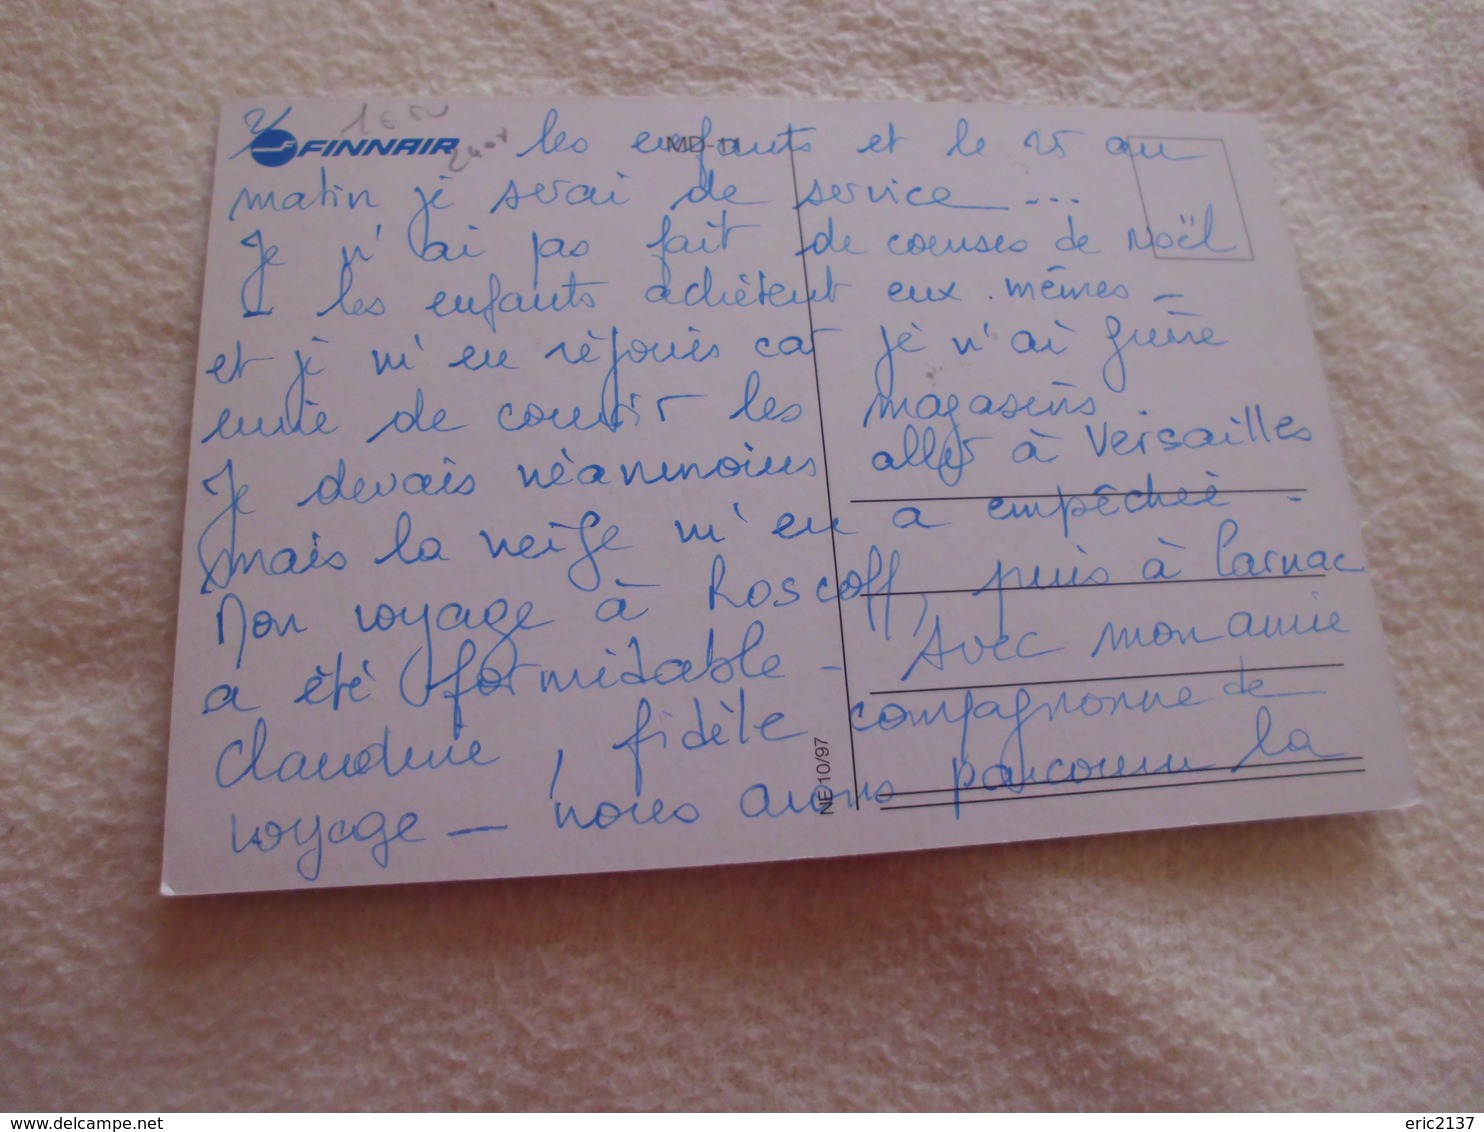 2/ FINNAIR MD-11
1€50
les enfants et le 25 au
matin je serai de service _ ...
Je n'ai pas fait de courses de Noël
_ les enfants achètent eux. mêmes _
et je m'en réjouis car je n'ai guère
envie de courir les magasins
Je devais néanmoins aller à Versailles
mais la neige m'en a empêchée -
Mon voyage à Roscoff, puis à Carnac
a été formidable - Avec mon amie
Claudine, fidèle compagnonne de
voyage _ nous avons parcouru la
NE 10/97
delcampe.net
eric2137